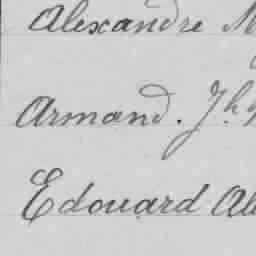 Alexandre M
Armand. Jh
Edouard Al